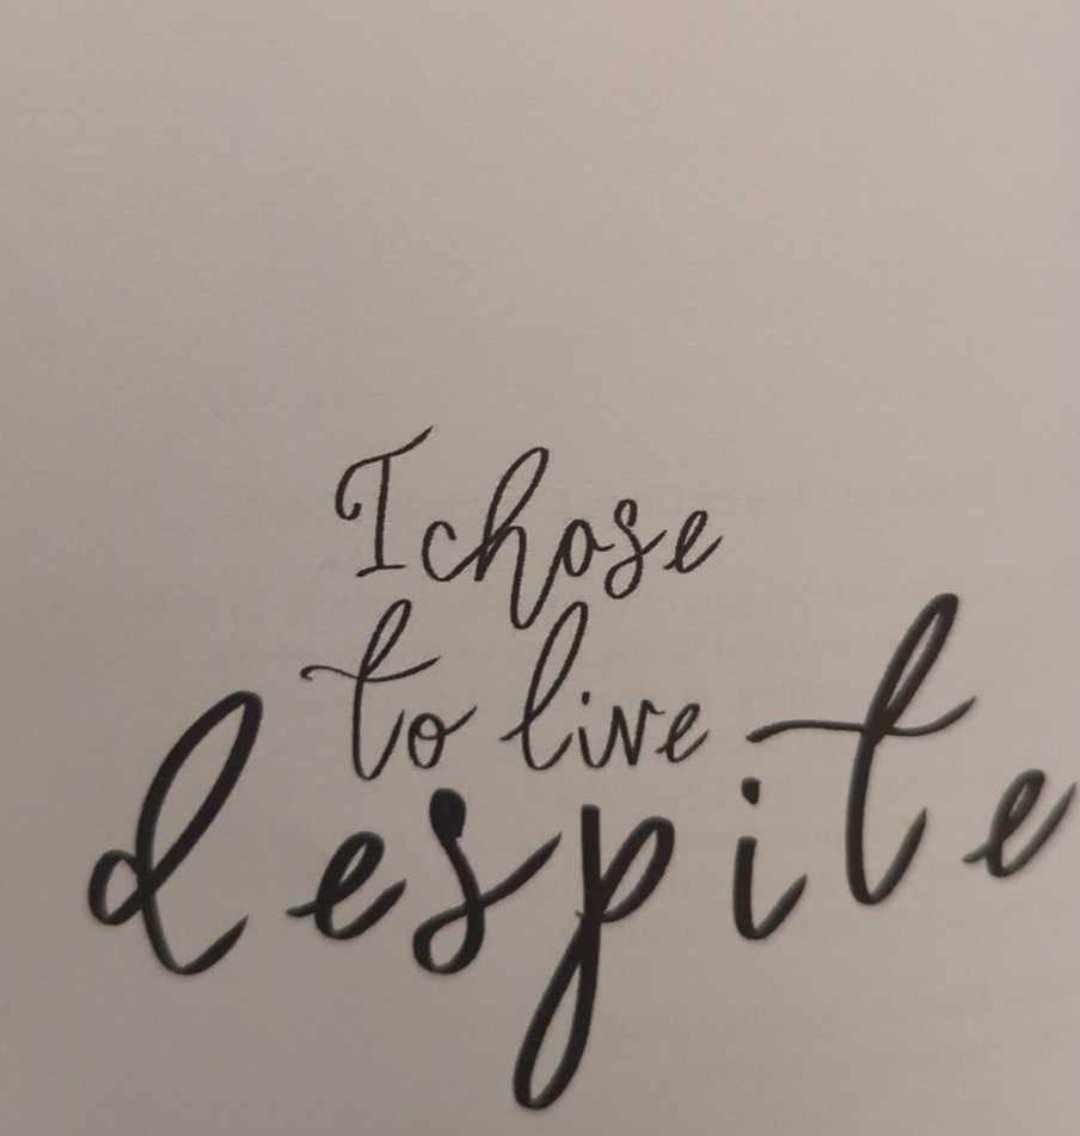 I chose
to live
despite